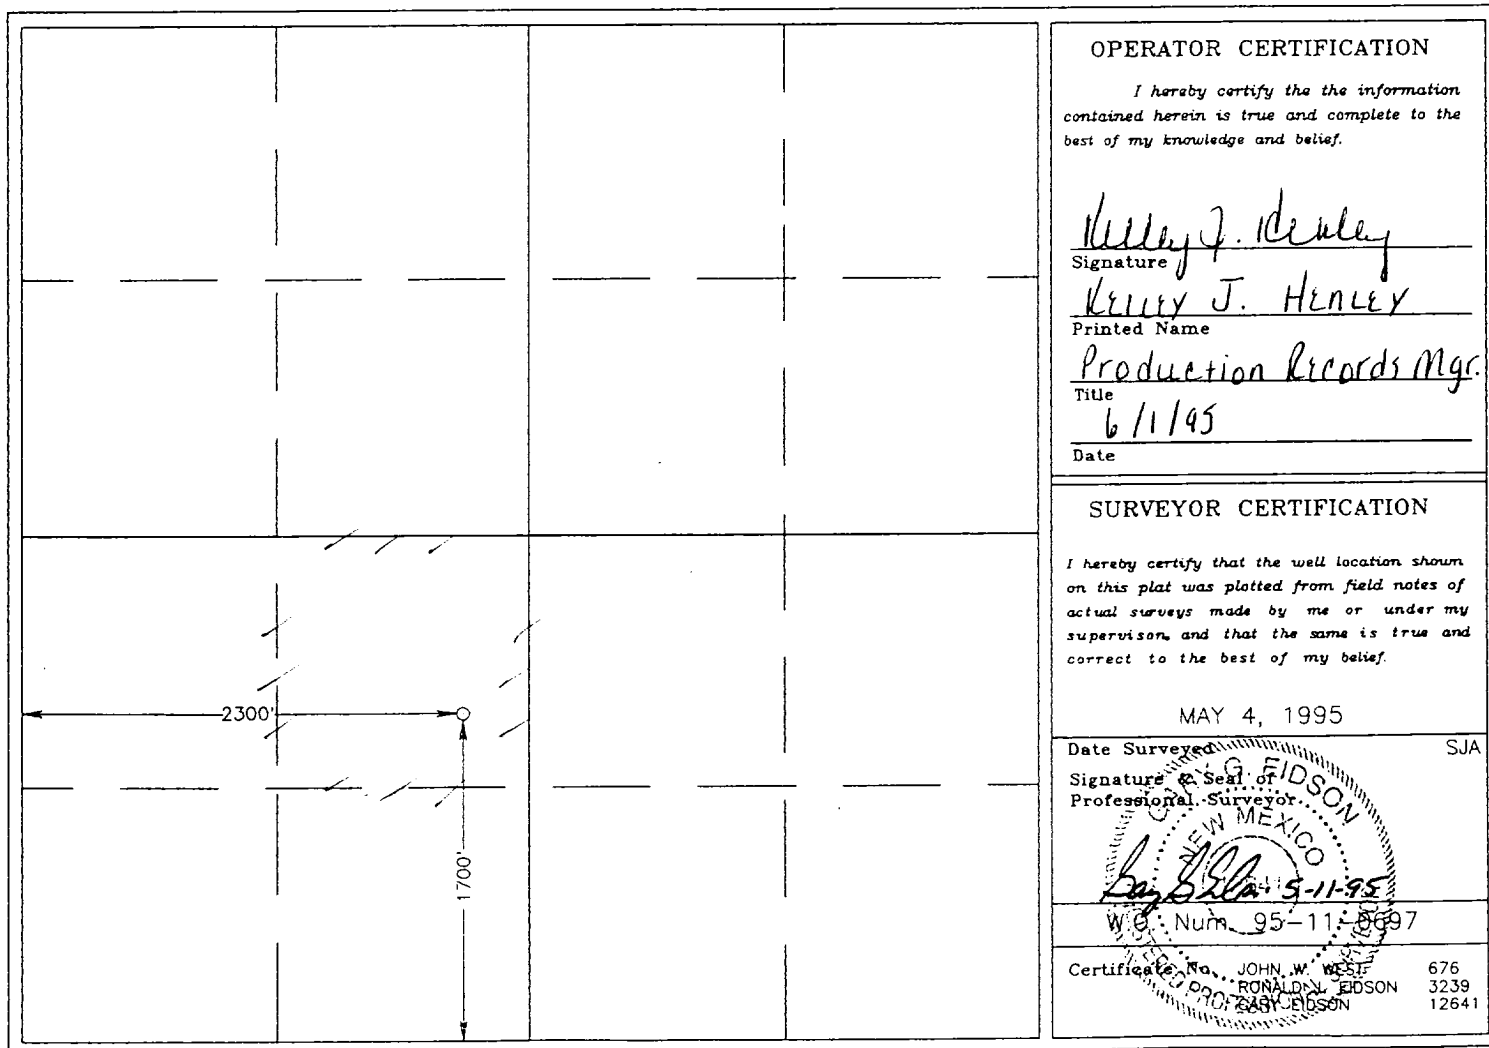 OPERATOR CERTIFICATION
I hereby certify the the information
contained herein is true and complete to the
best of my knowledge and belief.
Kelley J. Henley
Signature
KELLEY J. HENLEY
Printed Name
Production Records Mgr.
Title
6/1/95
Date
SURVEYOR CERTIFICATION
I hereby certify that the well location shown
on this plat was plotted from field notes of
actual surveys made by me or under my
supervison, and that the same is true and
correct to the best of my belief.
MAY 4, 1995
Date Surveyed SJA
Signature & Seal of
Professional Surveyor
GARY G. EIDSON
NEW MEXICO
5-11-95
W.O. Num. 95-11-0697
Certificate No. JOHN W. WEST 676
RONALD J. EIDSON 3239
GARY EIDSON 12641
2300'
1700'